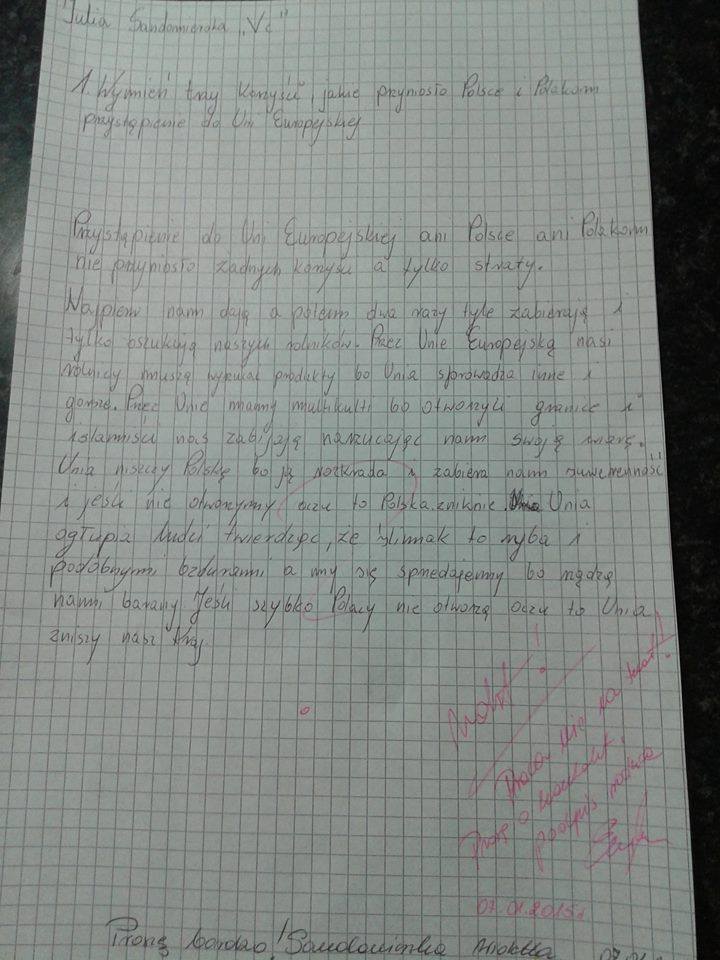 Julia Sandomierska „Vc"
1. Wymień trzy korzyści, jakie przyniosło Polsce i Polakom
przystąpienie do Uni Europejskiej
Przystąpienie do Uni Europejskiej ani Polsce ani Polakom
nie przyniosło żadnych korzyści a tylko straty.
Najpierw nam dają a potem dwa razy tyle zabierają i
tylko oszukują naszych rolników. Przez Unie Europejską nasi
rolnicy muszą wyrzucać produkty bo Unia sprowadza inne i
gorsze. Przez Unie mamy multikulti bo otworzyli granice i
islamiści nas zabijają narzucając nam swoją wiarę.
Unia niszczy Polskę bo ją rozkrada i zabiera nam suwerenność
i jeśli nie otworzymy oczu to Polska zniknie. Unia
ogłupia ludzi twierdząc, że ślimak to ryba i
podobnymi bzdurami a my się sprzedajemy bo rządzą
nami barany Jeśli szybko Polacy nie otworzą oczu to Unia
zniszy nasz kraj.
Praca nie na temat!
Proszę o
podpis rodzica
07.01.2015r
Proszę bardzo! Sandomierska 07.01